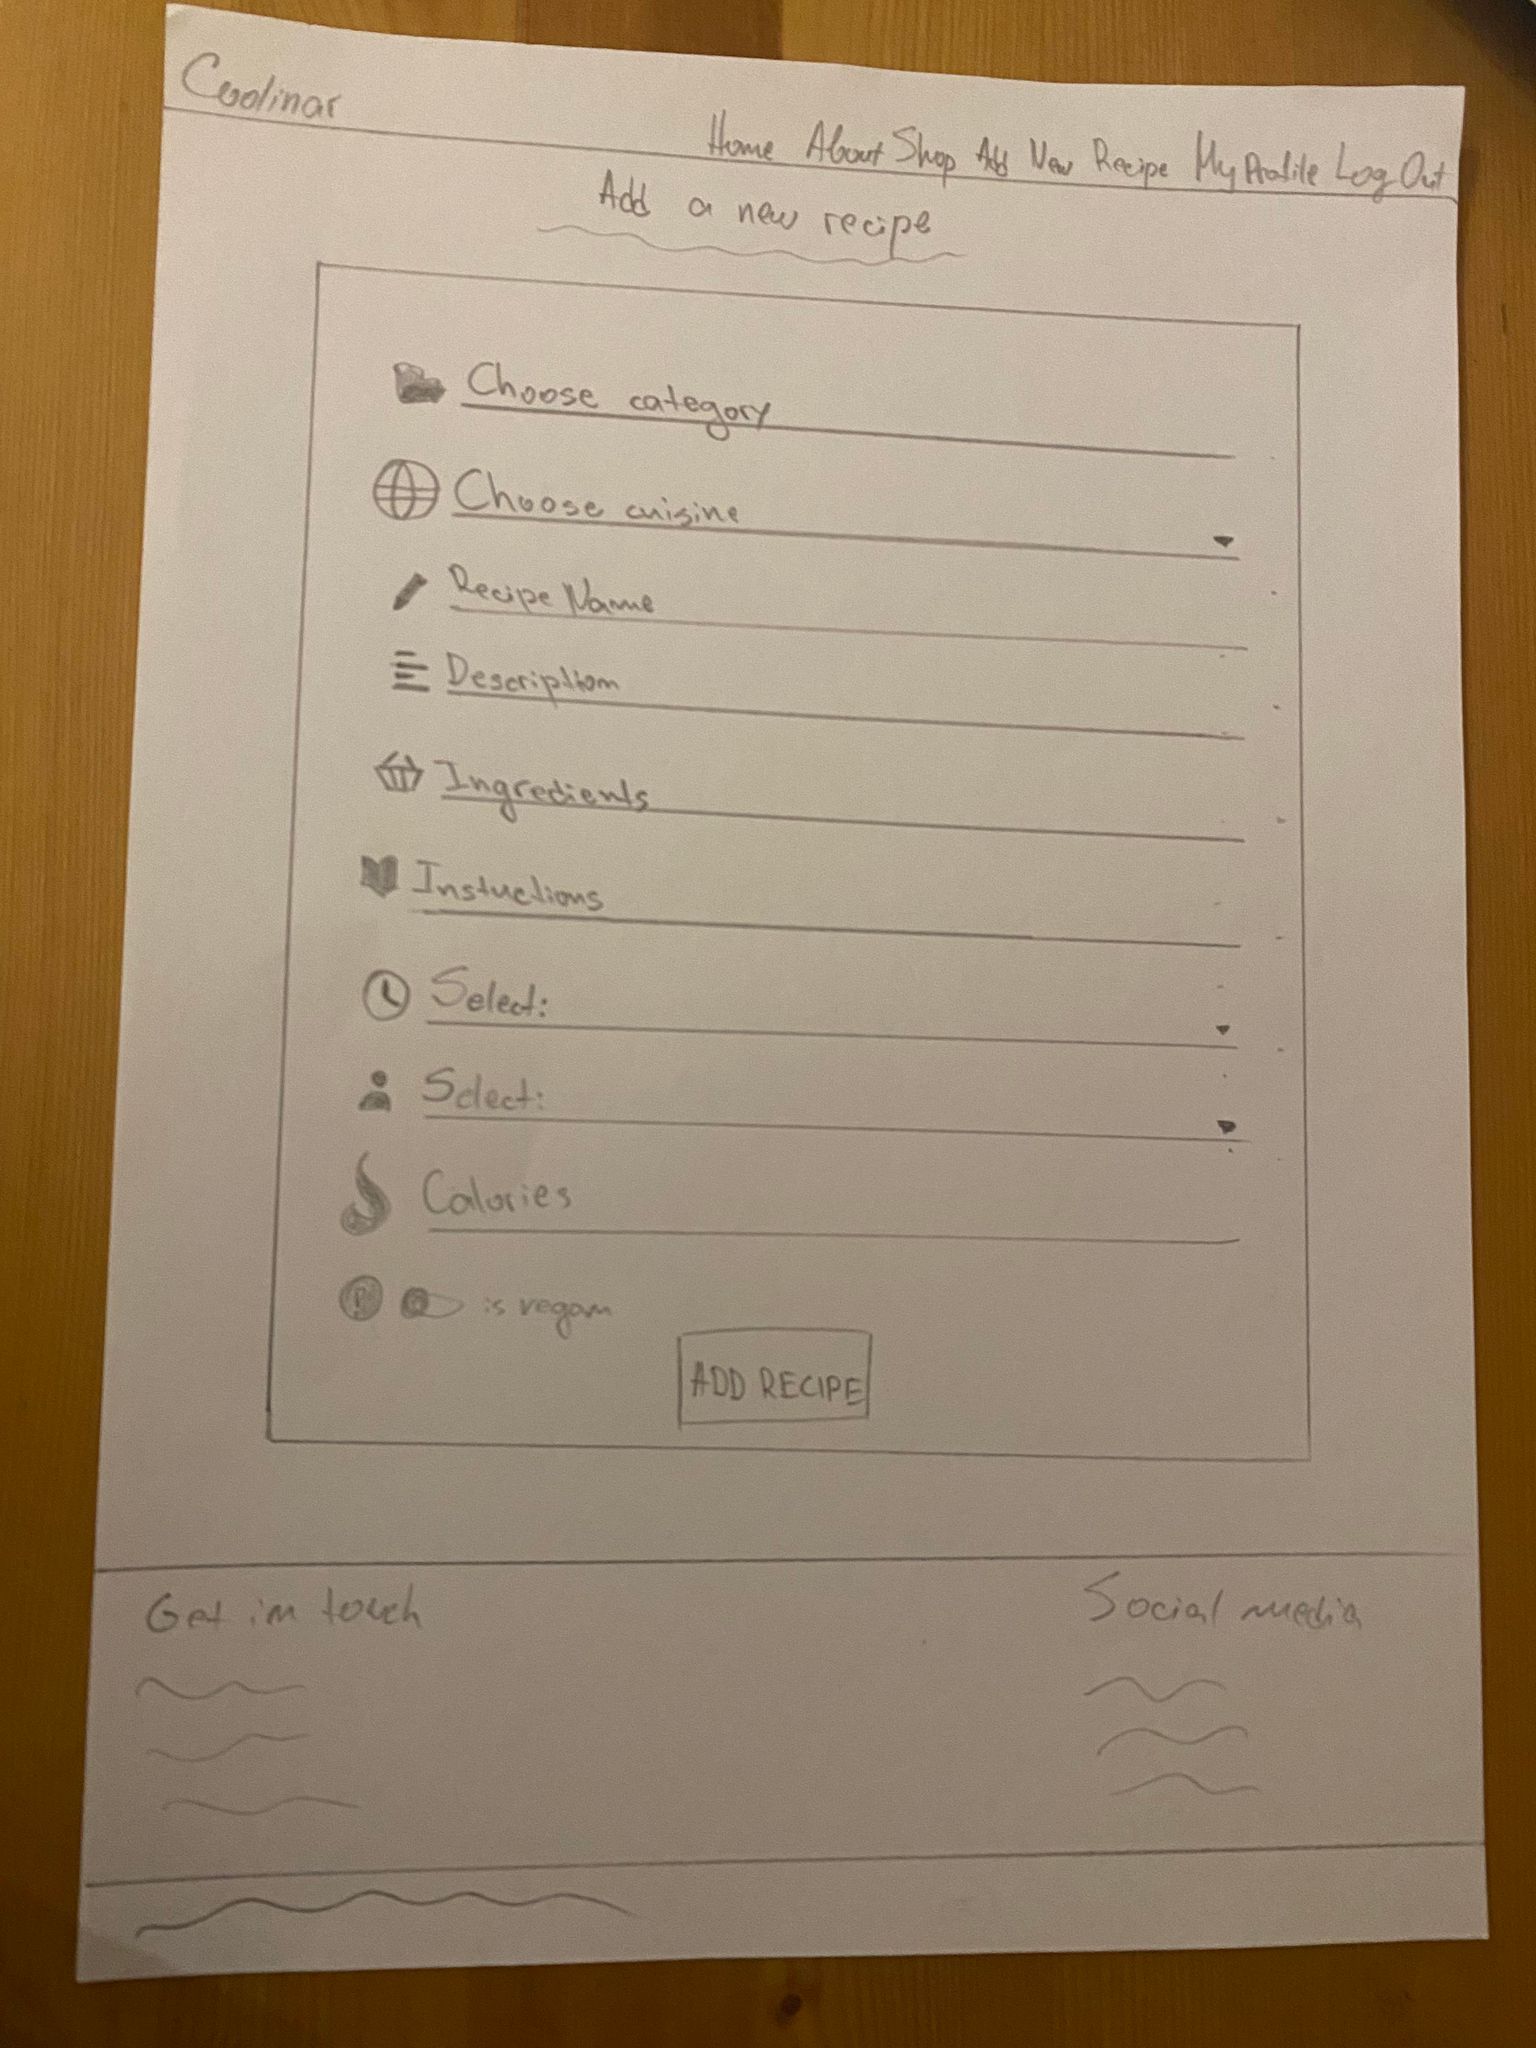 Coolinar
Home About Shop Add New Recipe My Profile Log Out
Add a new recipe
Choose category
Choose cuisine
Recipe Name
Description
Ingredients
Instuctions
Select:
Select:
Calories
is vegan
ADD RECIPE
Get in touch
Social media